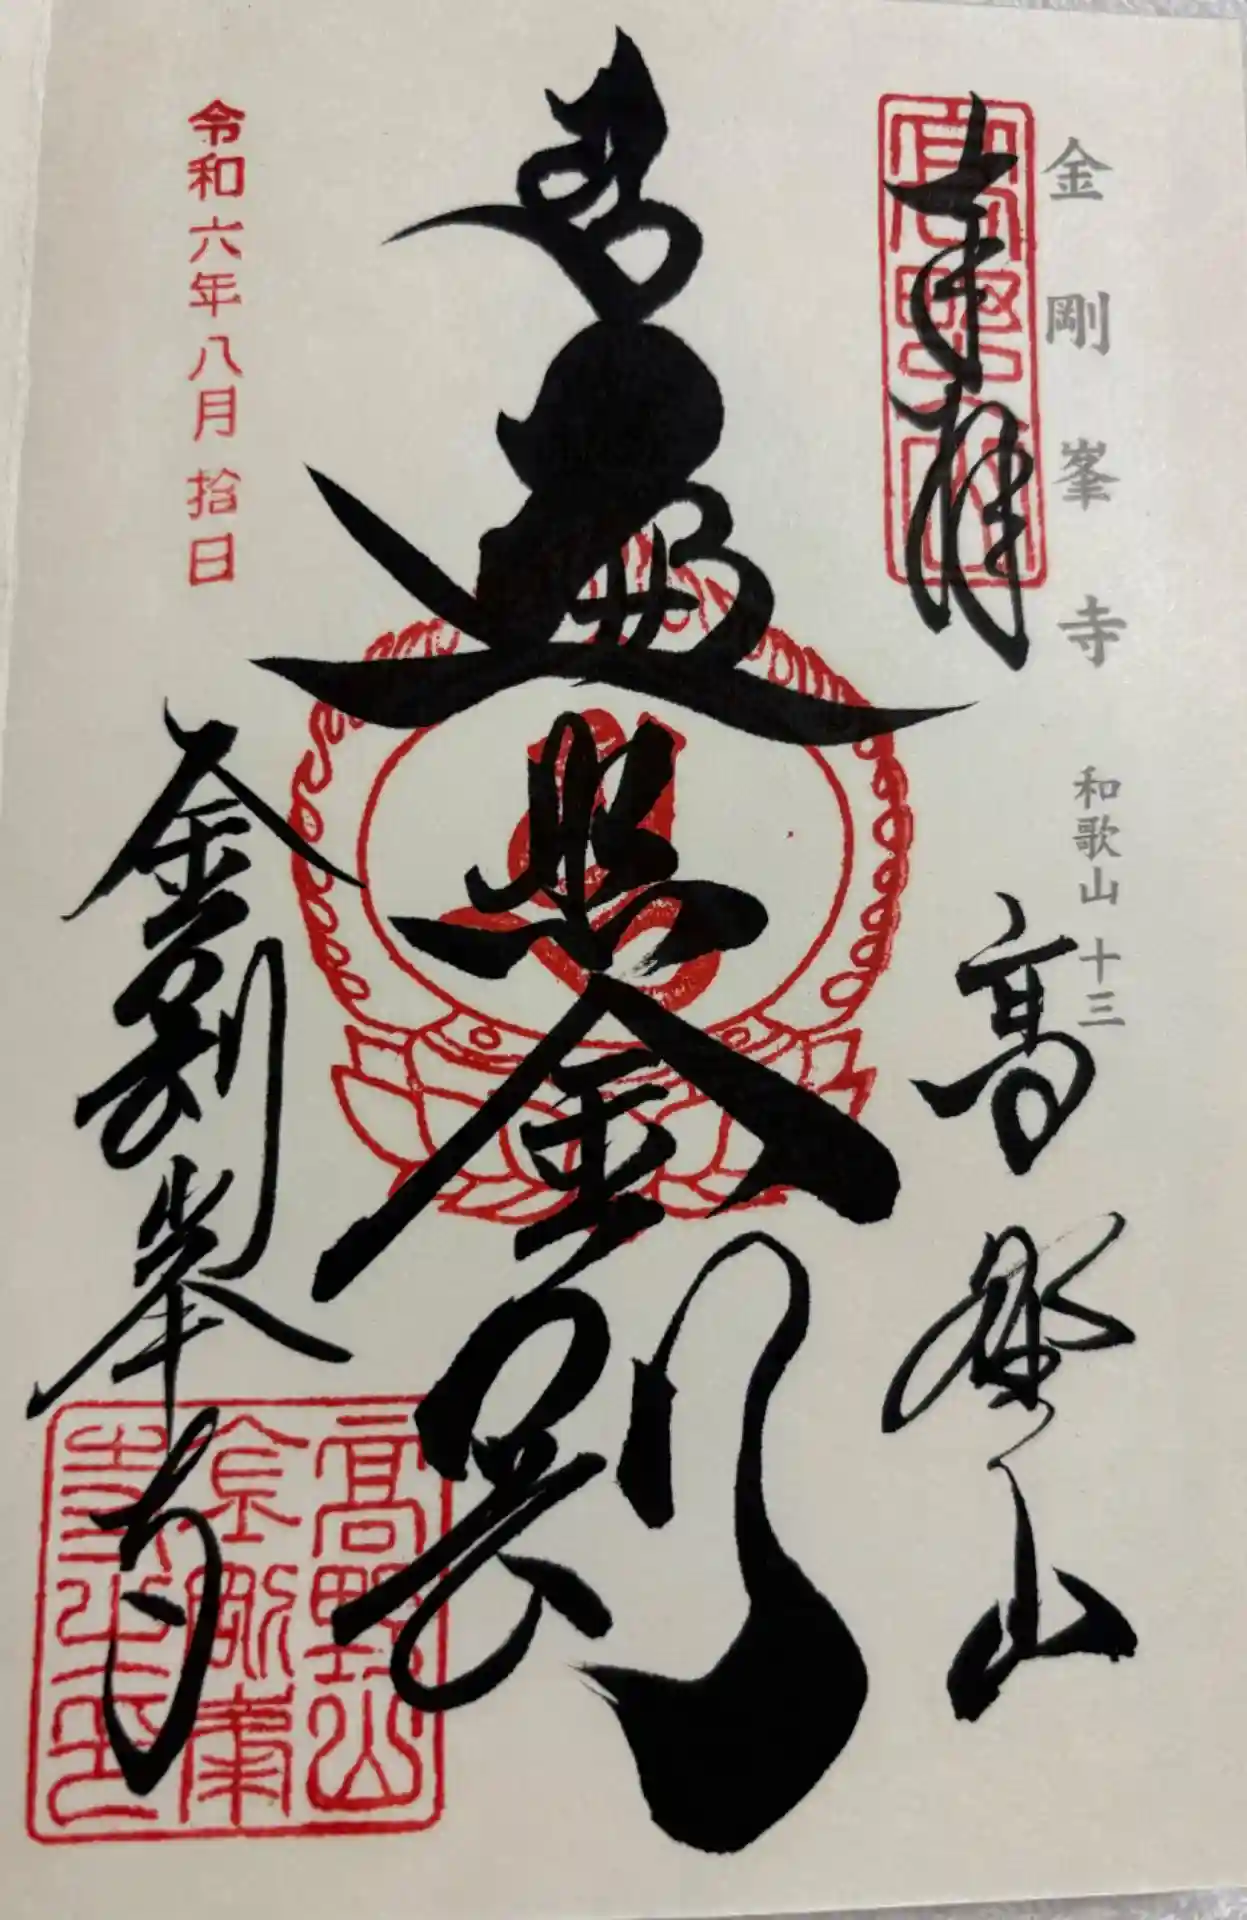 金剛峯寺 和歌山 十三
奉拝
高野山
高野山
遍照金剛
令和六年八月拾日
金剛峯寺
高野山
金剛峯
寺之印